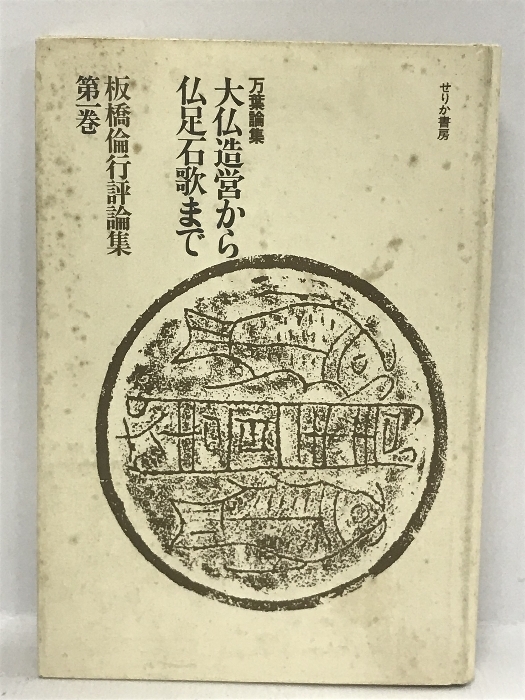 せりか書房
万葉論集
大仏造営から
仏足石歌まで
板橋倫行評論集
第一巻